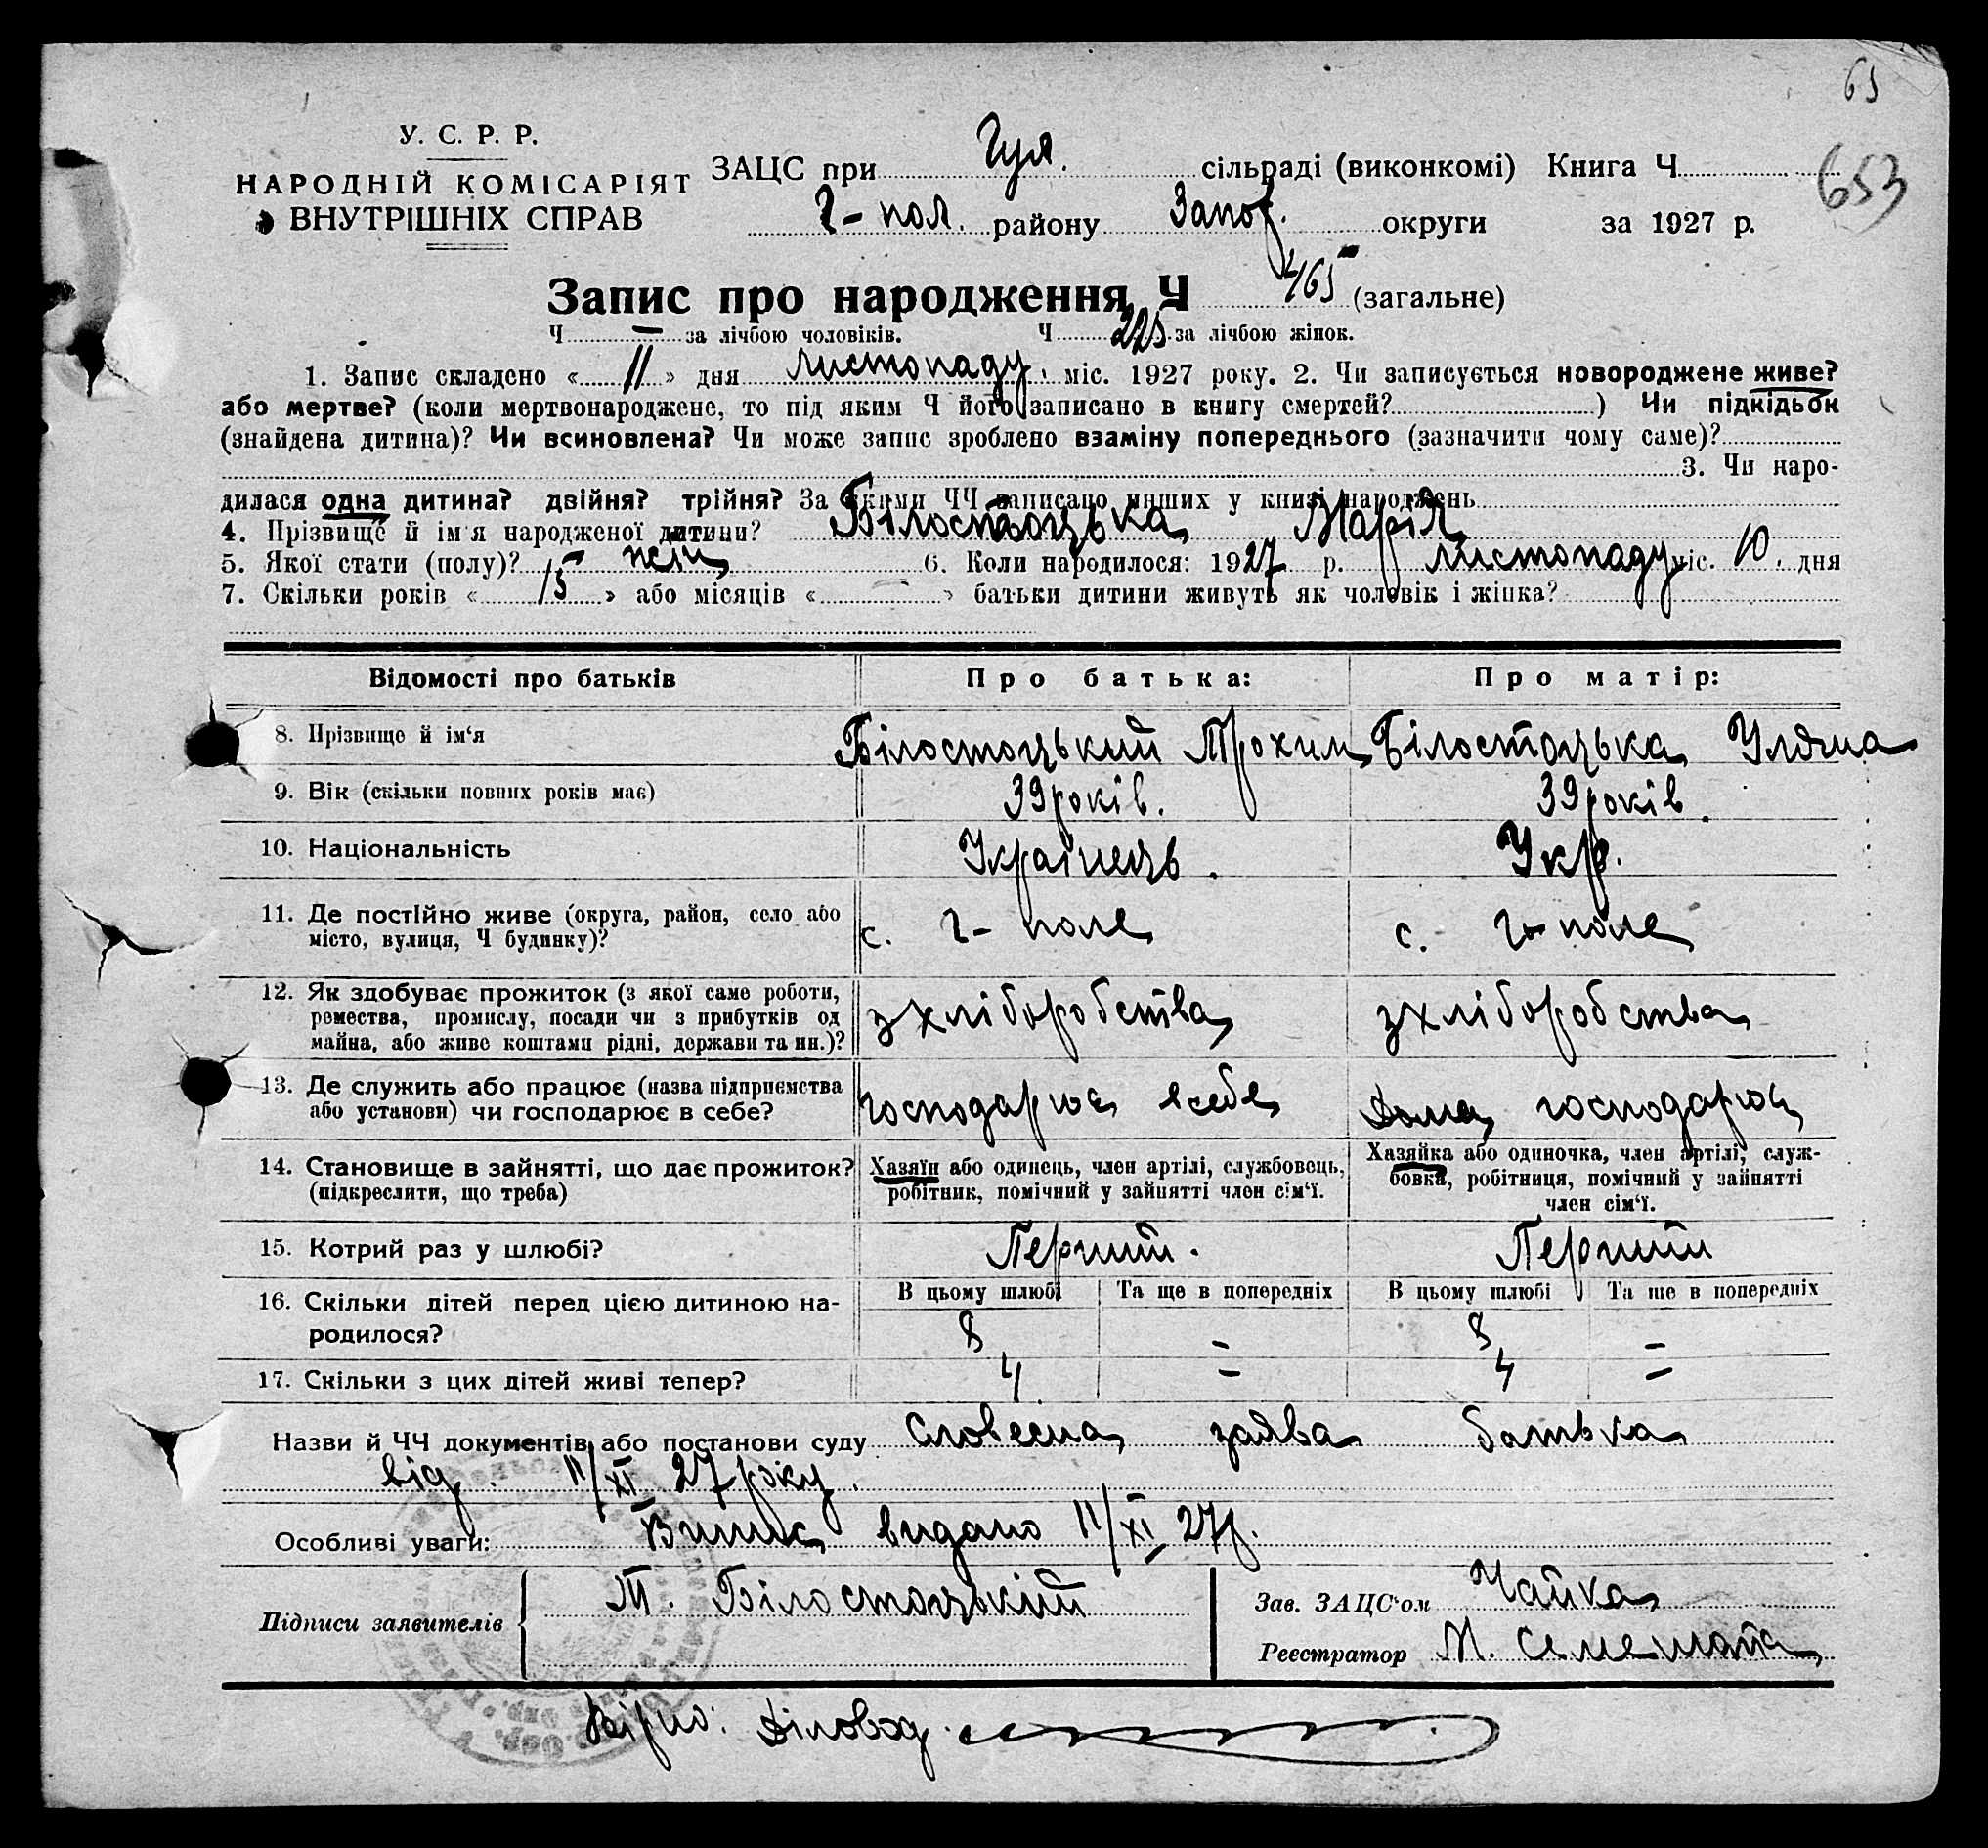 63
653
У. С. Р. Р.
НАРОДНІЙ КОМІСАРІЯТ
ВНУТРІШНІХ СПРАВ
ЗАЦС при Гул. сільраді (виконкомі) Книга Ч
Г-пол. району Запор. округи за 1927 р.
Запис про народження Ч 465 (загальне)
Ч — за лічбою чоловіків. Ч 225 за лічбою жінок.
1. Запис складено « 11 » дня листопаду міс. 1927 року. 2. Чи записується новороджене живе?
або мертве? (коли мертвонароджене, то під яким Ч його записано в книгу смертей? ) Чи підкідьок
(знайдена дитина)? Чи всиновлена? Чи може запис зроблено взаміну попереднього (зазначити чому саме)?
3. Чи наро-
дилася одна дитина? двійня? трійня? За якими ЧЧ записано инших у книзі народжень
4. Прізвище й ім'я народженої дитини? Білостоцька Марія
5. Якої стати (полу)? жін 6. Коли народилося: 1927 р. листопаду міс. 10 дня
7. Скільки років « 15 » або місяців « — » батьки дитини живуть як чоловік і жінка?
Відомості про батьків Про батька: Про матір:
8. Прізвище й ім'я Білостоцький Трохим Білостоцька Уляна
9. Вік (скільки повних років має) 39 років. 39 років.
10. Національність Українець. Укр.
11. Де постійно живе (округа, район, село або
місто, вулиця, Ч будинку)? с. Г-поле с. Г-поле
12. Як здобуває прожиток (з якої саме роботи,
ремества, промислу, посади чи з прибутків од
майна, або живе коштами рідні, держави та ин.)? зхліборобства зхліборобства
13. Де служить або працює (назва підприємства
або установи) чи господарює в себе? господарює всебе Дома господарює
14. Становище в зайнятті, що дає прожиток?
(підкреслити, що треба)
Хазяїн або одинець, член артілі, службовець,
робітник, помічний у зайнятті член сім'ї.
Хазяйка або одиночка, член артілі, служ-
бовка, робітниця, помічний у зайнятті
член сім'ї.
15. Котрий раз у шлюбі? Перший. Перший
16. Скільки дітей перед цією дитиною на-
родилося?
В цьому шлюбі Та ще в попередніх В цьому шлюбі Та ще в попередніх
8 — 8 —
17. Скільки з цих дітей живі тепер? 4 — 4 —
Назви й ЧЧ документів або постанови суду Словесна заява батька
від 11/XI 27 року.
Особливі уваги: Випис видано 11/XI 27р.
Підписи заявителів Т. Білостоцький
Зав. ЗАЦС'ом Чайка
Реєстратор М.
Вірно: Діловод